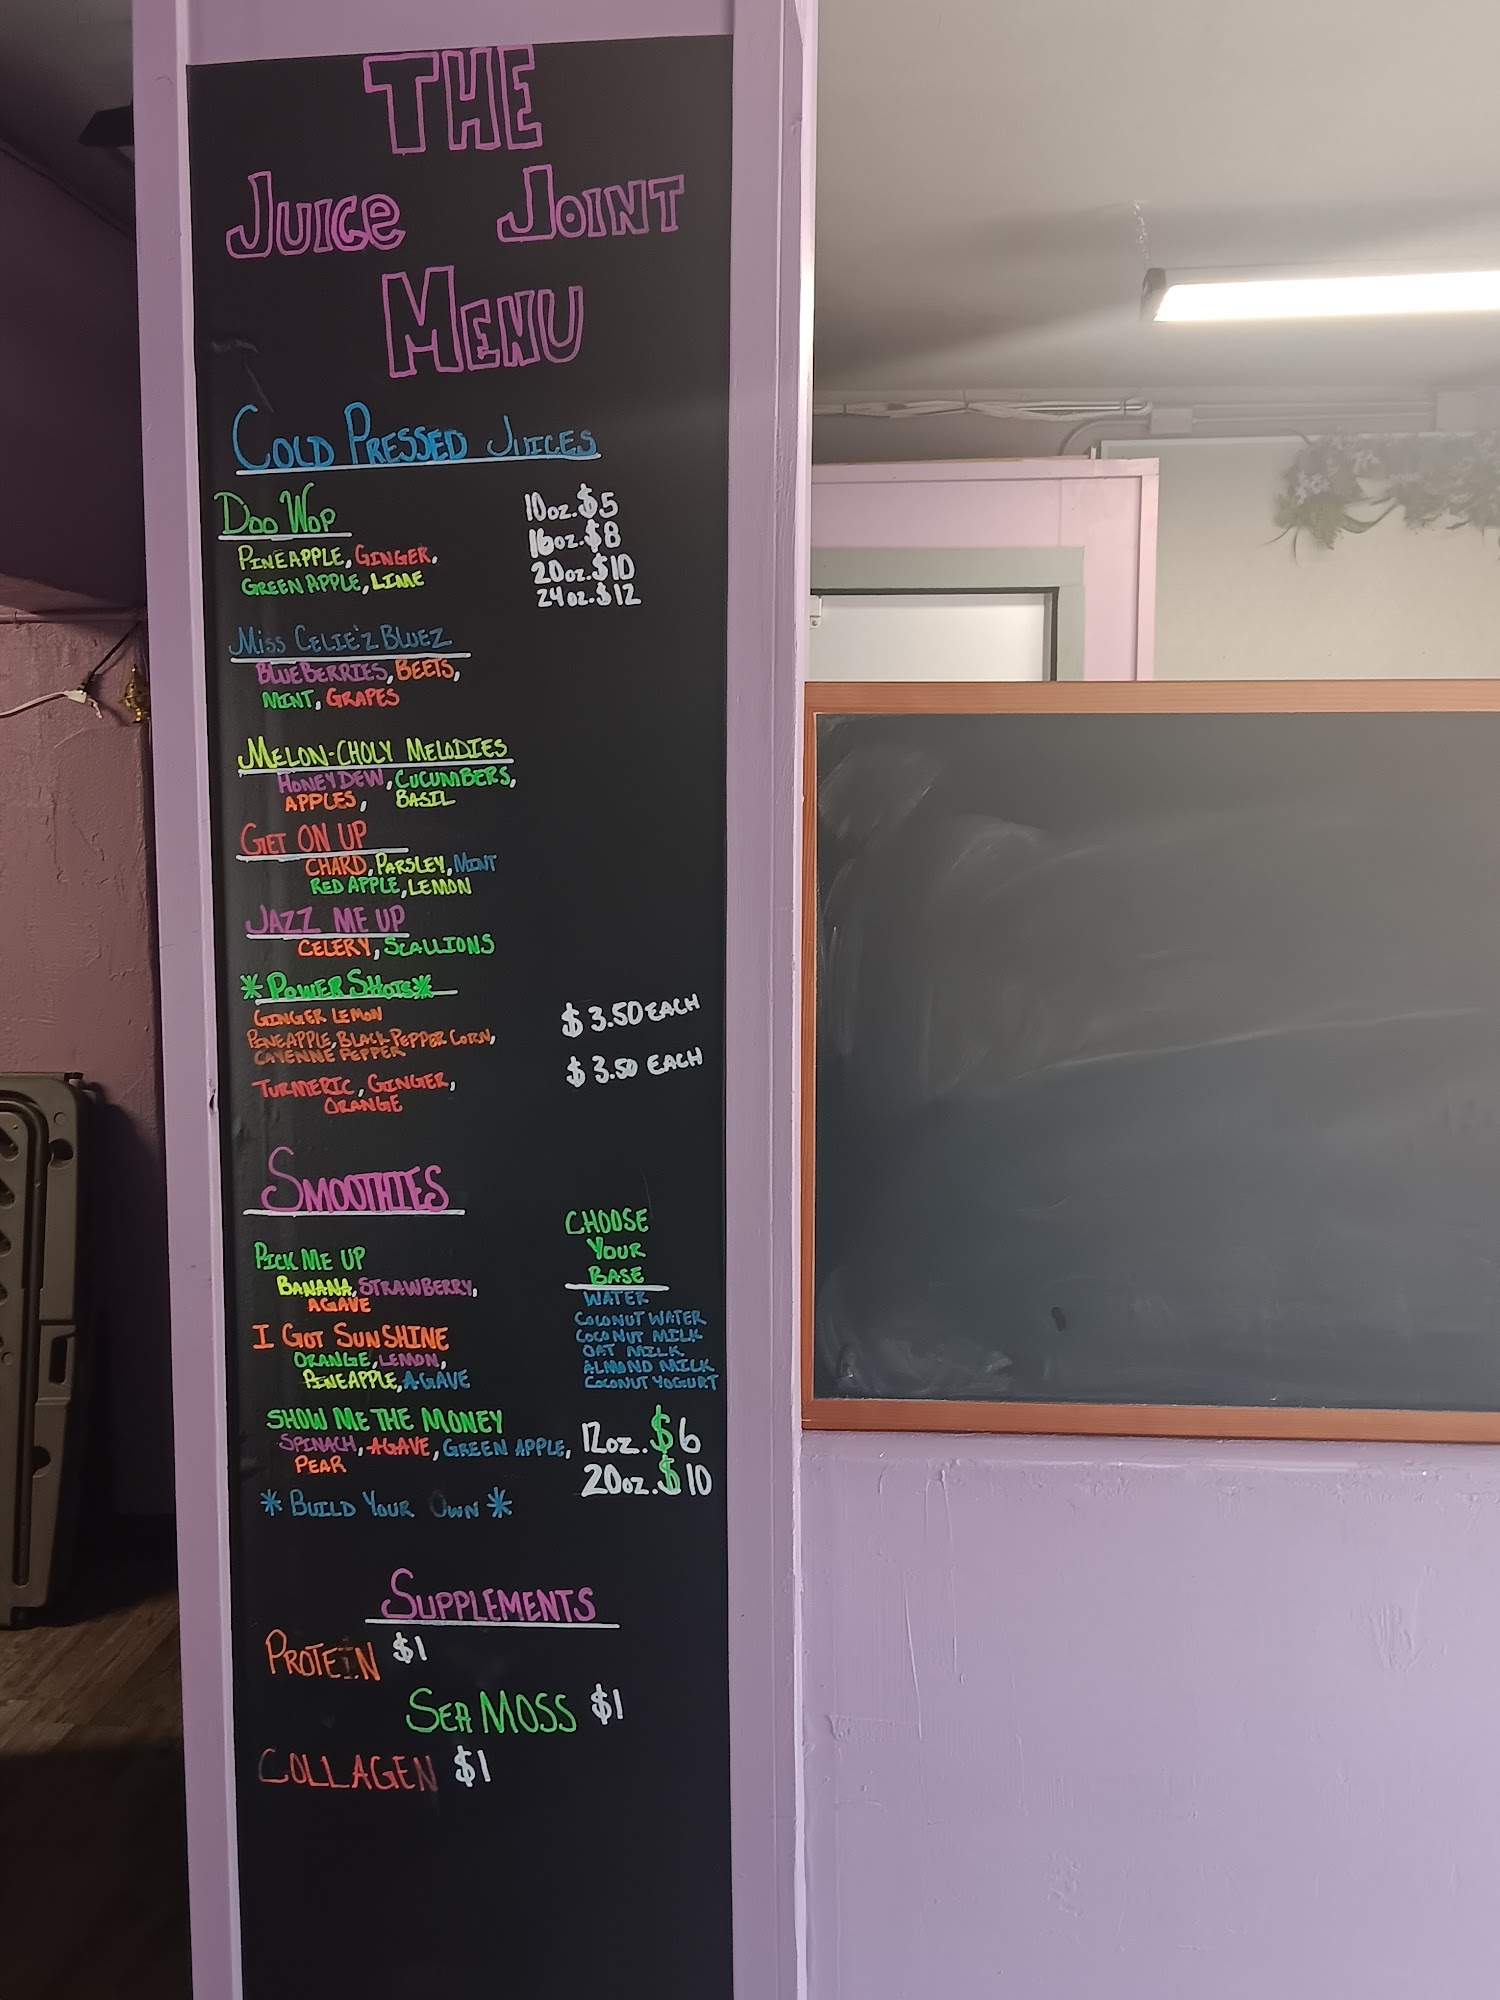 THE
JUICE JOINT
MENU
COLD PRESSED JUICES
DOO WOP
10oz.$5
PINEAPPLE, GINGER,
16oz.$8
GREEN APPLE, LIME
20oz.$10
24oz.$12
MISS CELIE'Z BLUEZ
BLUEBERRIES, BEETS,
MINT, GRAPES
MELON-CHOLY MELODIES
HONEYDEW, CUCUMBERS,
APPLES, BASIL
GET ON UP
CHARD, PARSLEY, MINT
RED APPLE, LEMON
JAZZ ME UP
CELERY, SCALLIONS
*POWER SHOTS*
GINGER LEMON
$3.50 EACH
PINEAPPLE, BLACK PEPPER CORN,
CAYENNE PEPPER
$3.50 EACH
TURMERIC, GINGER,
ORANGE
SMOOTHIES
PICK ME UP
BANANA, STRAWBERRY,
AGAVE
I GOT SUNSHINE
ORANGE, LEMON,
PINEAPPLE, AGAVE
SHOW ME THE MONEY
SPINACH, AGAVE, GREEN APPLE,
PEAR
*BUILD YOUR OWN*
CHOOSE
YOUR
BASE
WATER
COCONUT WATER
COCONUT MILK
OAT MILK
ALMOND MILK
COCONUT YOGURT
12oz.$6
20oz.$10
SUPPLEMENTS
PROTEIN $1
SEA MOSS $1
COLLAGEN $1